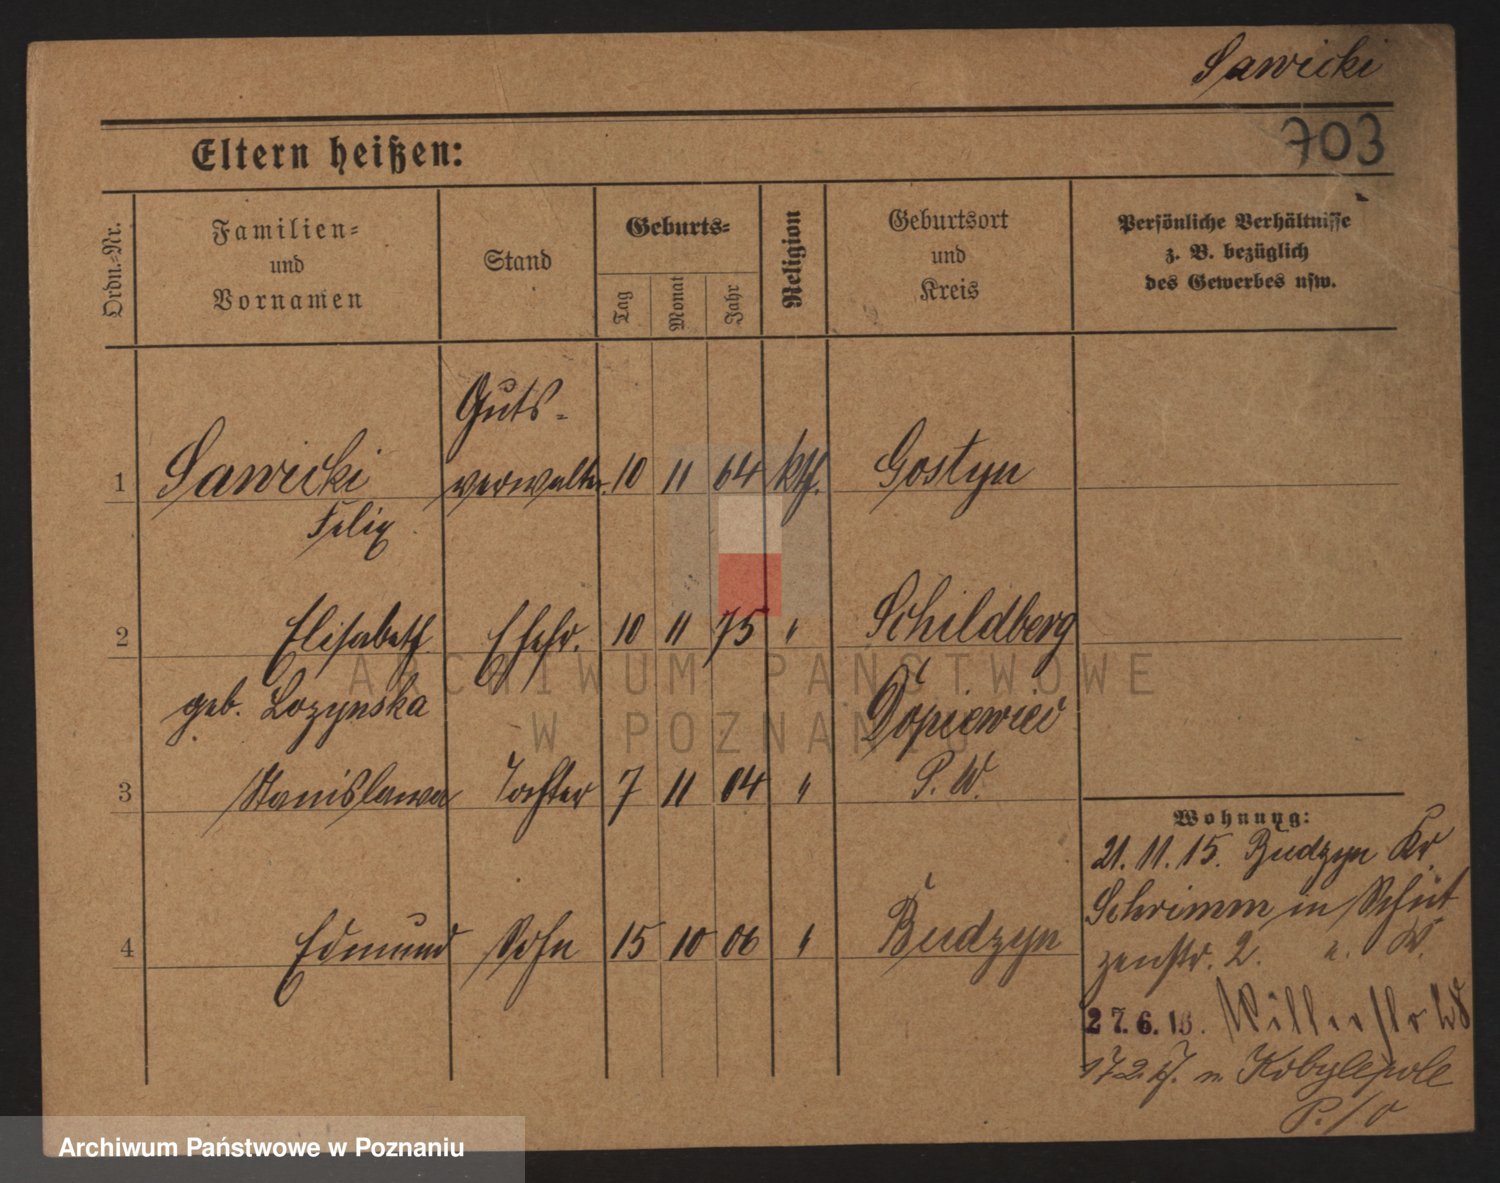 Sawicki
703
Eltern heißen:
Ordn.-Nr.
Familien-
und
Vornamen
Stand
Geburts-
Tag
Monat
Jahr
Religion
Geburtsort
und
Kreis
Persönliche Verhältnisse
z. B. bezüglich
des Gewerbes usw.
Guts-
1 Sawicki verwalter 10 11 64 kth. Gostyn
Felix
2 Elisabeth Ehefr. 10 11 75 " Schildberg
geb. Lozynska Dopiewiec
3 Stanislawa Tochter 7 11 04 " P. W.
4 Edmund Sohn 15 10 06 " Budzyn
Wohnung:
21. 11. 15. Budzyn Kr.
Schrimm in Schüt
zenstr. 2. W.
27. 6. 16.
n Kobylepole
P./O
ARCHIWUM PAŃSTWOWE
W POZNANIU
Archiwum Państwowe w Poznaniu